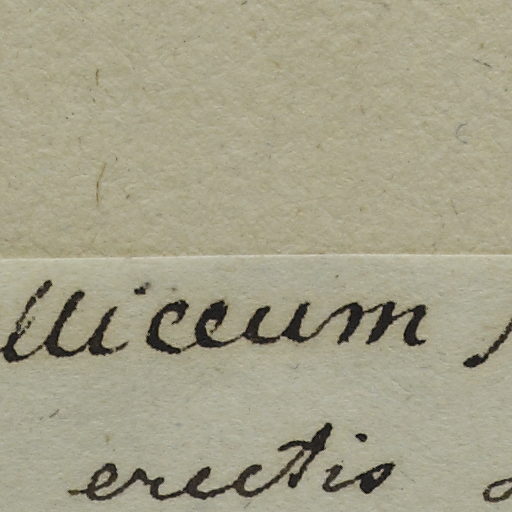 lliceum
erectis